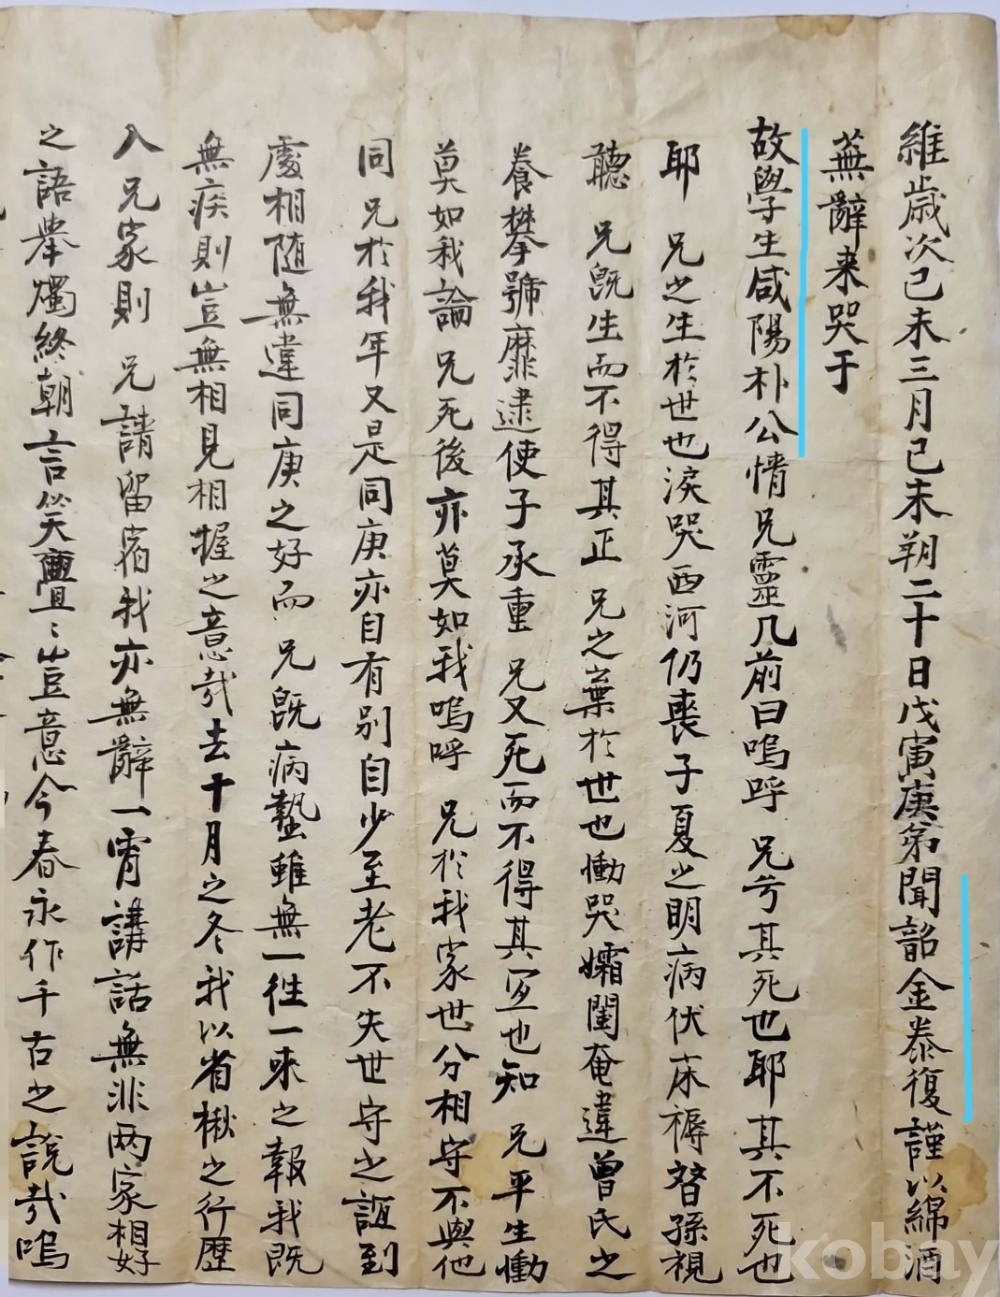 維歲次己未三月己未朔二十日戊寅庚弟聞韶金泰復謹以綿酒
蕪辭来哭于
故學生咸陽朴公情兄靈几前曰嗚呼 兄兮其死也耶其不死也
耶 兄之生於世也淚哭西河仍喪子夏之明病伏床褥替孫視
聽 兄旣生而不得其正 兄之棄於世也慟哭孀閨奄違曾氏之
養攀號靡逮使子承重 兄又死而不得其宜也知 兄平生慟
莫如我論 兄死後亦莫如我嗚呼 兄於我家世分相守不與他
同 兄於我年又是同庚亦自有別自少至老不失世守之誼到
處相随無違同庚之好而 兄旣病蟄雖無一徃一来之報我旣
無疾則豈無相見相握之意哉去十月之冬我以省楸之行歷
入 兄家則 兄請留宿我亦無辭一宵講話無非两家相好
之語擧燭終朝言笑亹〻豈意今春永作千古之說哉嗚
kobay